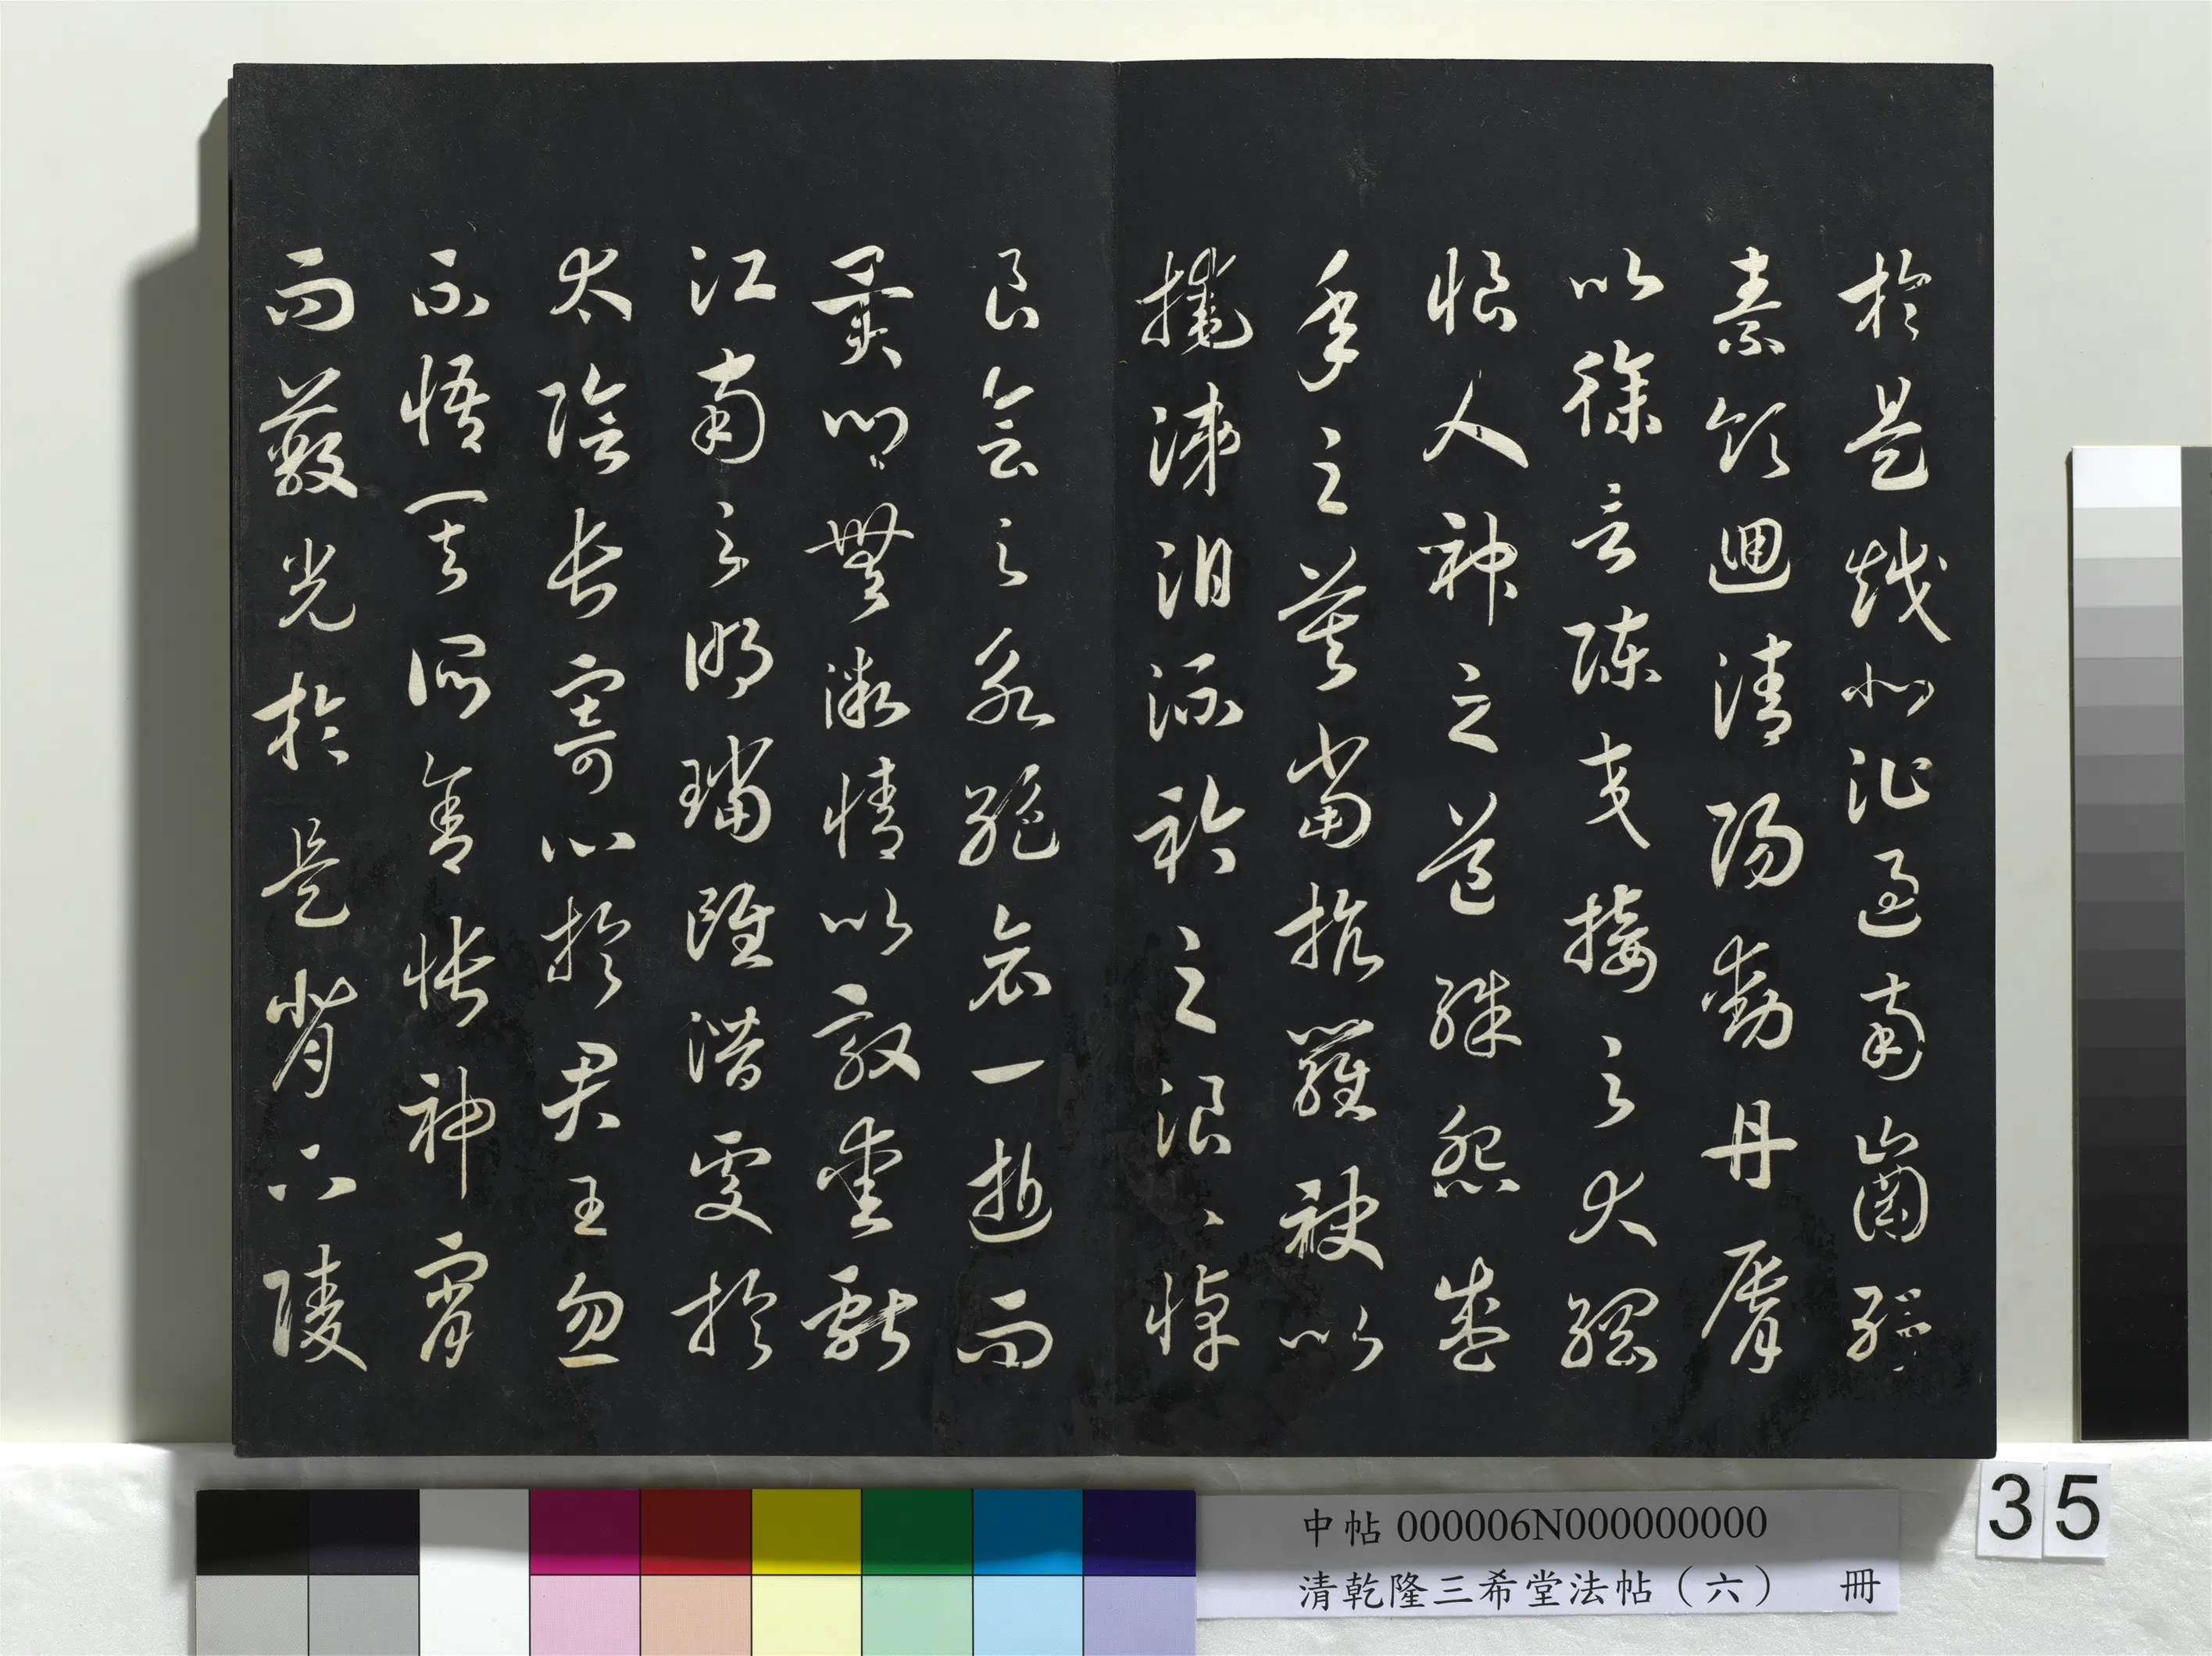 於是越北沚過南崗紆
素領迴清陽動丹脣
以徐言陳交接之大綱
恨人神之道殊怨盛
年之莫當抗羅袂以
掩涕泪流衿之浪〻悼
良會之永絕哀一逝而
異鄉無微情以效愛獻
江南之明璫雖潛處於
太陰長寄心於君王忽
不悟其所舍悵神宵
而蔽光於是背下陵
35
中帖 000006N000000000
清乾隆三希堂法帖（六） 冊